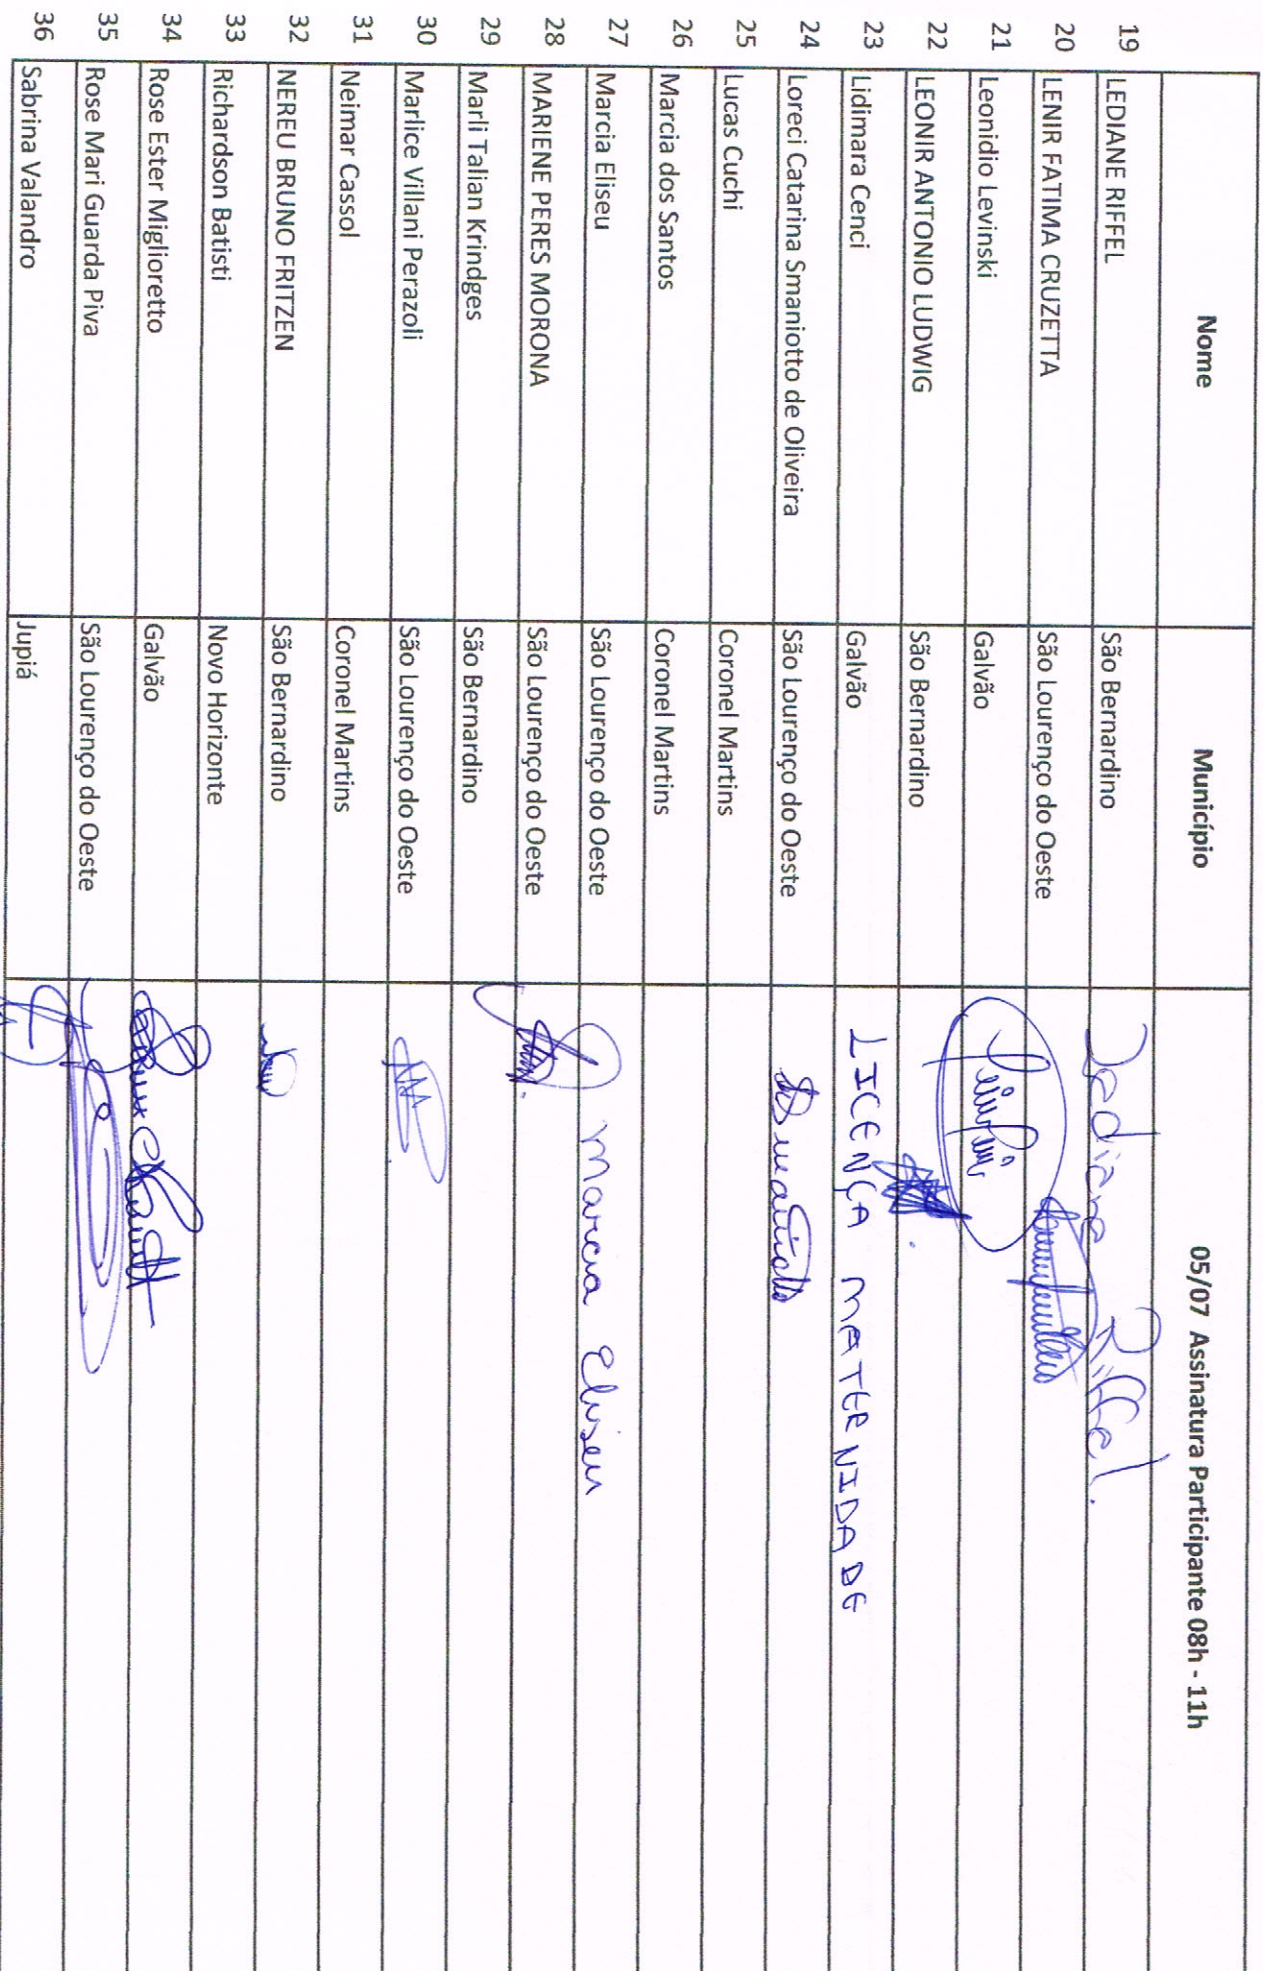 Nome Município 05/07 Assinatura Participante 08h - 11h
19 LEDIANE RIFFEL São Bernardino Lediane Riffel.
20 LENIR FATIMA CRUZETTA São Lourenço do Oeste
21 Leonidio Levinski Galvão
22 LEONIR ANTONIO LUDWIG São Bernardino
23 Lidimara Cenci Galvão LICENÇA MATERNIDADE
24 Loreci Catarina Smaniotto de Oliveira São Lourenço do Oeste
25 Lucas Cuchi Coronel Martins
26 Marcia dos Santos Coronel Martins
27 Marcia Eliseu São Lourenço do Oeste Marcia Eliseu
28 MARIENE PERES MORONA São Lourenço do Oeste
29 Marli Talian Krindges São Bernardino
30 Marlice Villani Perazoli São Lourenço do Oeste
31 Neimar Cassol Coronel Martins
32 NEREU BRUNO FRITZEN São Bernardino
33 Richardson Batisti Novo Horizonte
34 Rose Ester Miglioretto Galvão
35 Rose Mari Guarda Piva São Lourenço do Oeste
36 Sabrina Valandro Jupiá